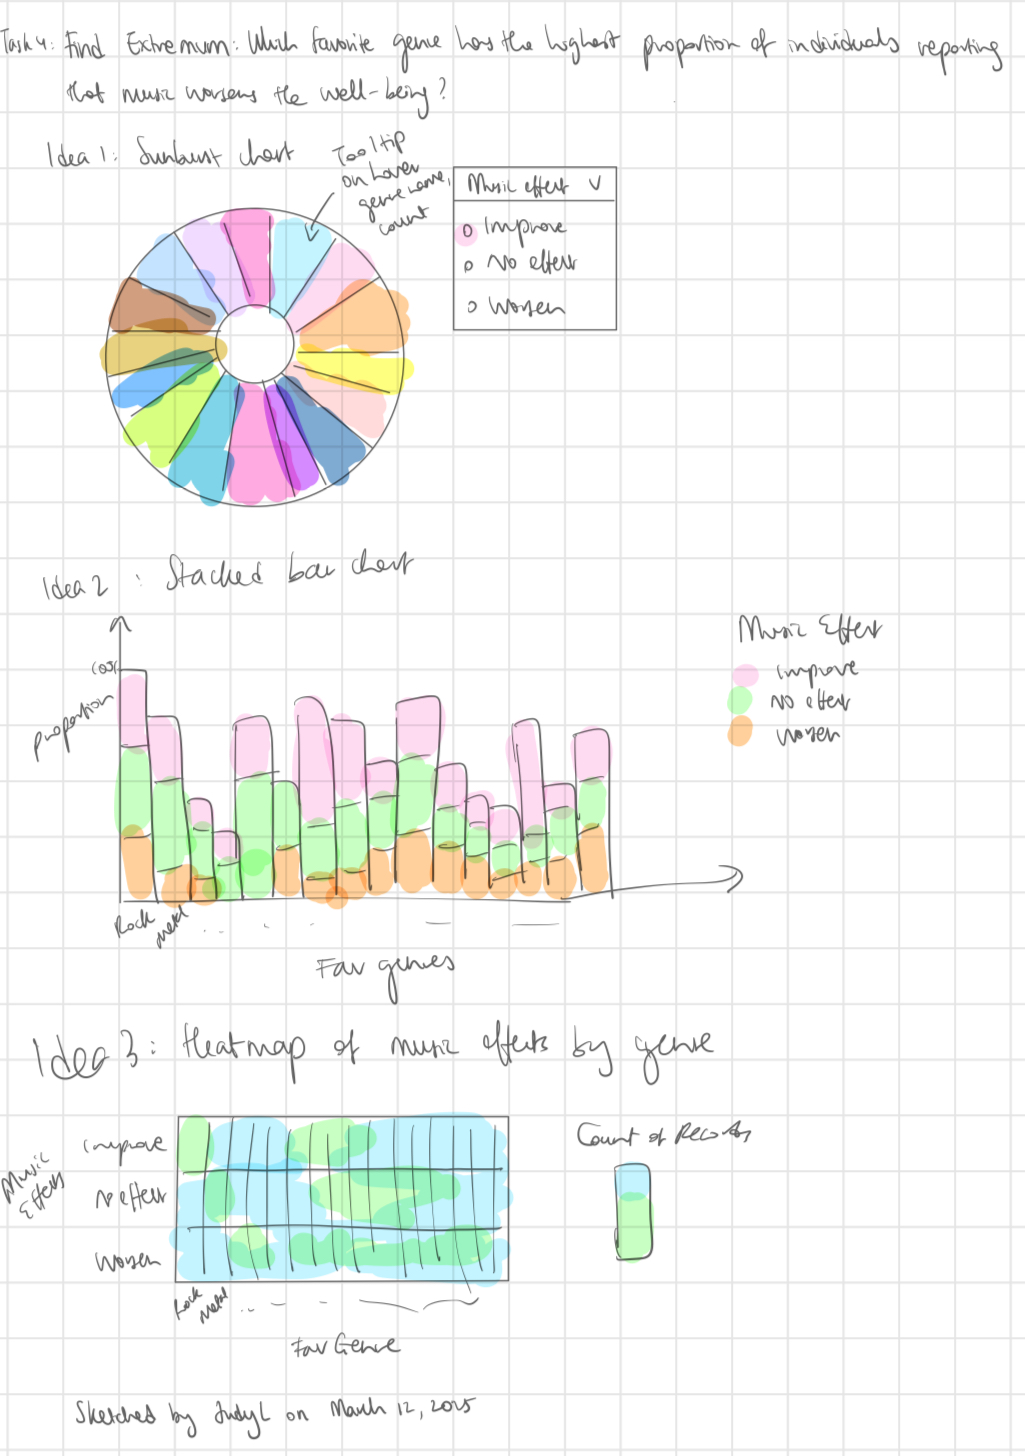 Task 4: Find Extremum: Which favorite genre has the highest proportion of individuals reporting
that music worsens the well-being?
Idea 1: Sunburst chart
Tooltip
on hover
genre name,
count
Music effect V
Improve
No effect
Worsen
Idea 2 : Stacked bar chart
100%
proportion
Music Effect
improve
No effect
worsen
Rock
Metal
Fav genres
Idea 3: Heatmap of music effects by genre
Music
Effects
improve
No effect
Worsen
Count of Records
Rock
Metal
Fav Genre
Sketched by JudyL on March 12, 2025